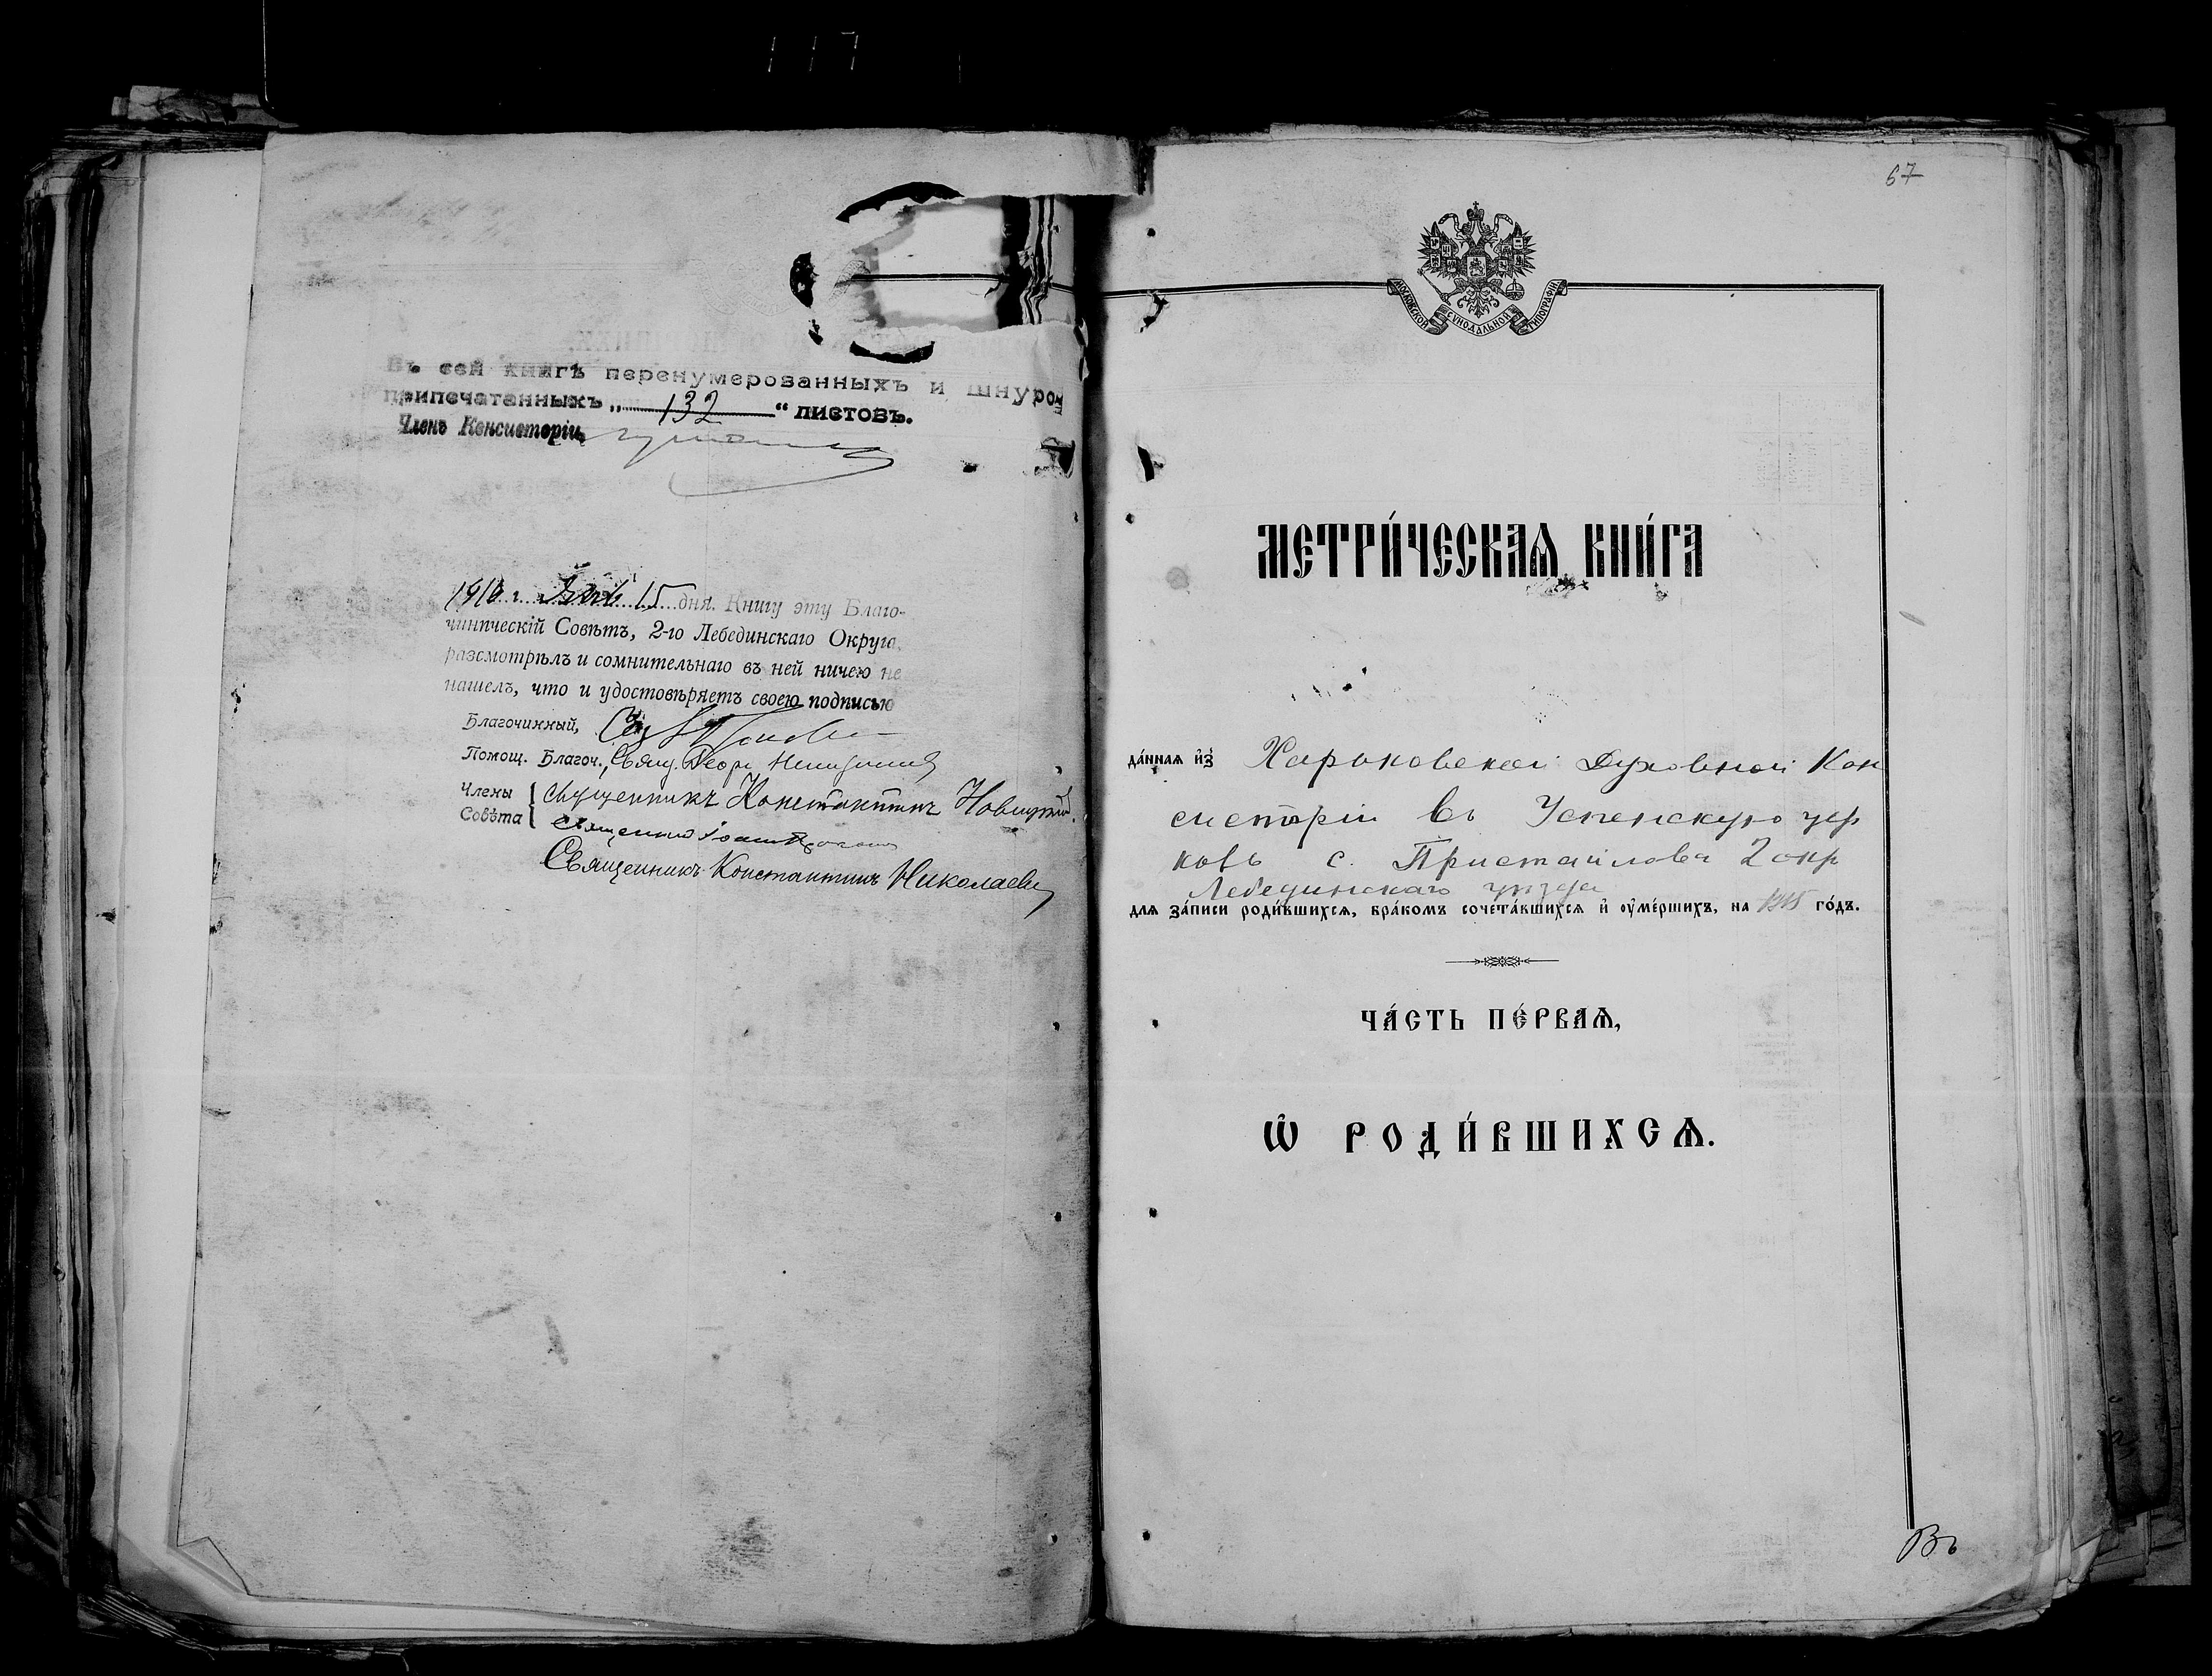 117
Въ сей книгѣ перенумерованныхъ и шнуром
припечатанныхъ „ 132 “ листовъ.
Членъ Консисторіи
1916 г. Янв 15 дня. Книгу эту Благо-
чинническій Совѣтъ, 2-го Лебединскаго Округа,
разсмотрѣлъ и сомнительнаго въ ней ничего не
нашелъ, что и удостовѣряетъ своею подписью
Благочинный, Свящ
Помощ. Благоч., Свящ. Георг
Члены Совѣта { Священникъ Константинъ Новицкій.
Священникъ Іоаннъ
Священникъ Константинъ Николаевъ
67
МОСКОВСКОЙ СУНОДАЛЬНОЙ ТИПОГРАФІИ
МЕТРИ́ЧЕСКАѦ КНИ́ГА
да́нная и҆з̾ Харьковской Духовной Кон
систоріи въ Успенскую цер
ковь с. Пристайлова 2 окр
Лебединскаго уѣзда
для за́писи роди́вшихся, бра́комъ сочета́вшихся и҆ оу҆ме́ршихъ, на 1915 го́дъ.
ЧА́СТЬ ПЕ́РВАѦ,
Ѡ҆ РОДИ́ВШИХСѦ.
Въ